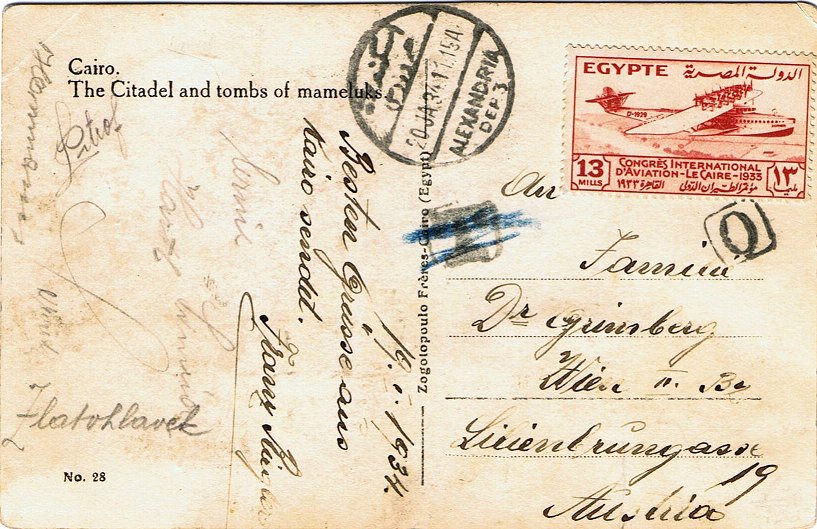 Cairo.
The Citadel and tombs of mameluks.
ALEXANDRIA
DEP. 3
20.JA.34.11.15A
EGYPTE الدولة المصرية
D-1929
13 MILLS ١٣ مليم
CONGRÈS INTERNATIONAL
D'AVIATION-LE CAIRE-1933
مؤتمر الطيران الدولى القاهرة ١٩٣٣
O
An
Familie
Dr Grünberg
Wien II. Be
Lilienbrunngasse
19
Austria
19. I. 1934.
Besten Grüsse aus
Kairo sendet.
Franz
Zogolopoulo Frères-Cairo (Egypt)
Zlatohlavek
No. 28